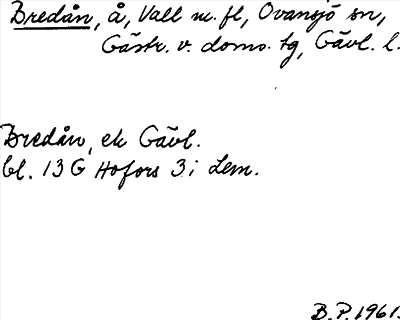 Bredån, å, Vall m. fl, Ovansjö sn,
Gästr. v. doms. tg, Gävl. l.
Bredån, ek Gävl.
bl. 13 G Hofors 3 i Lem.
B.P. 1961.